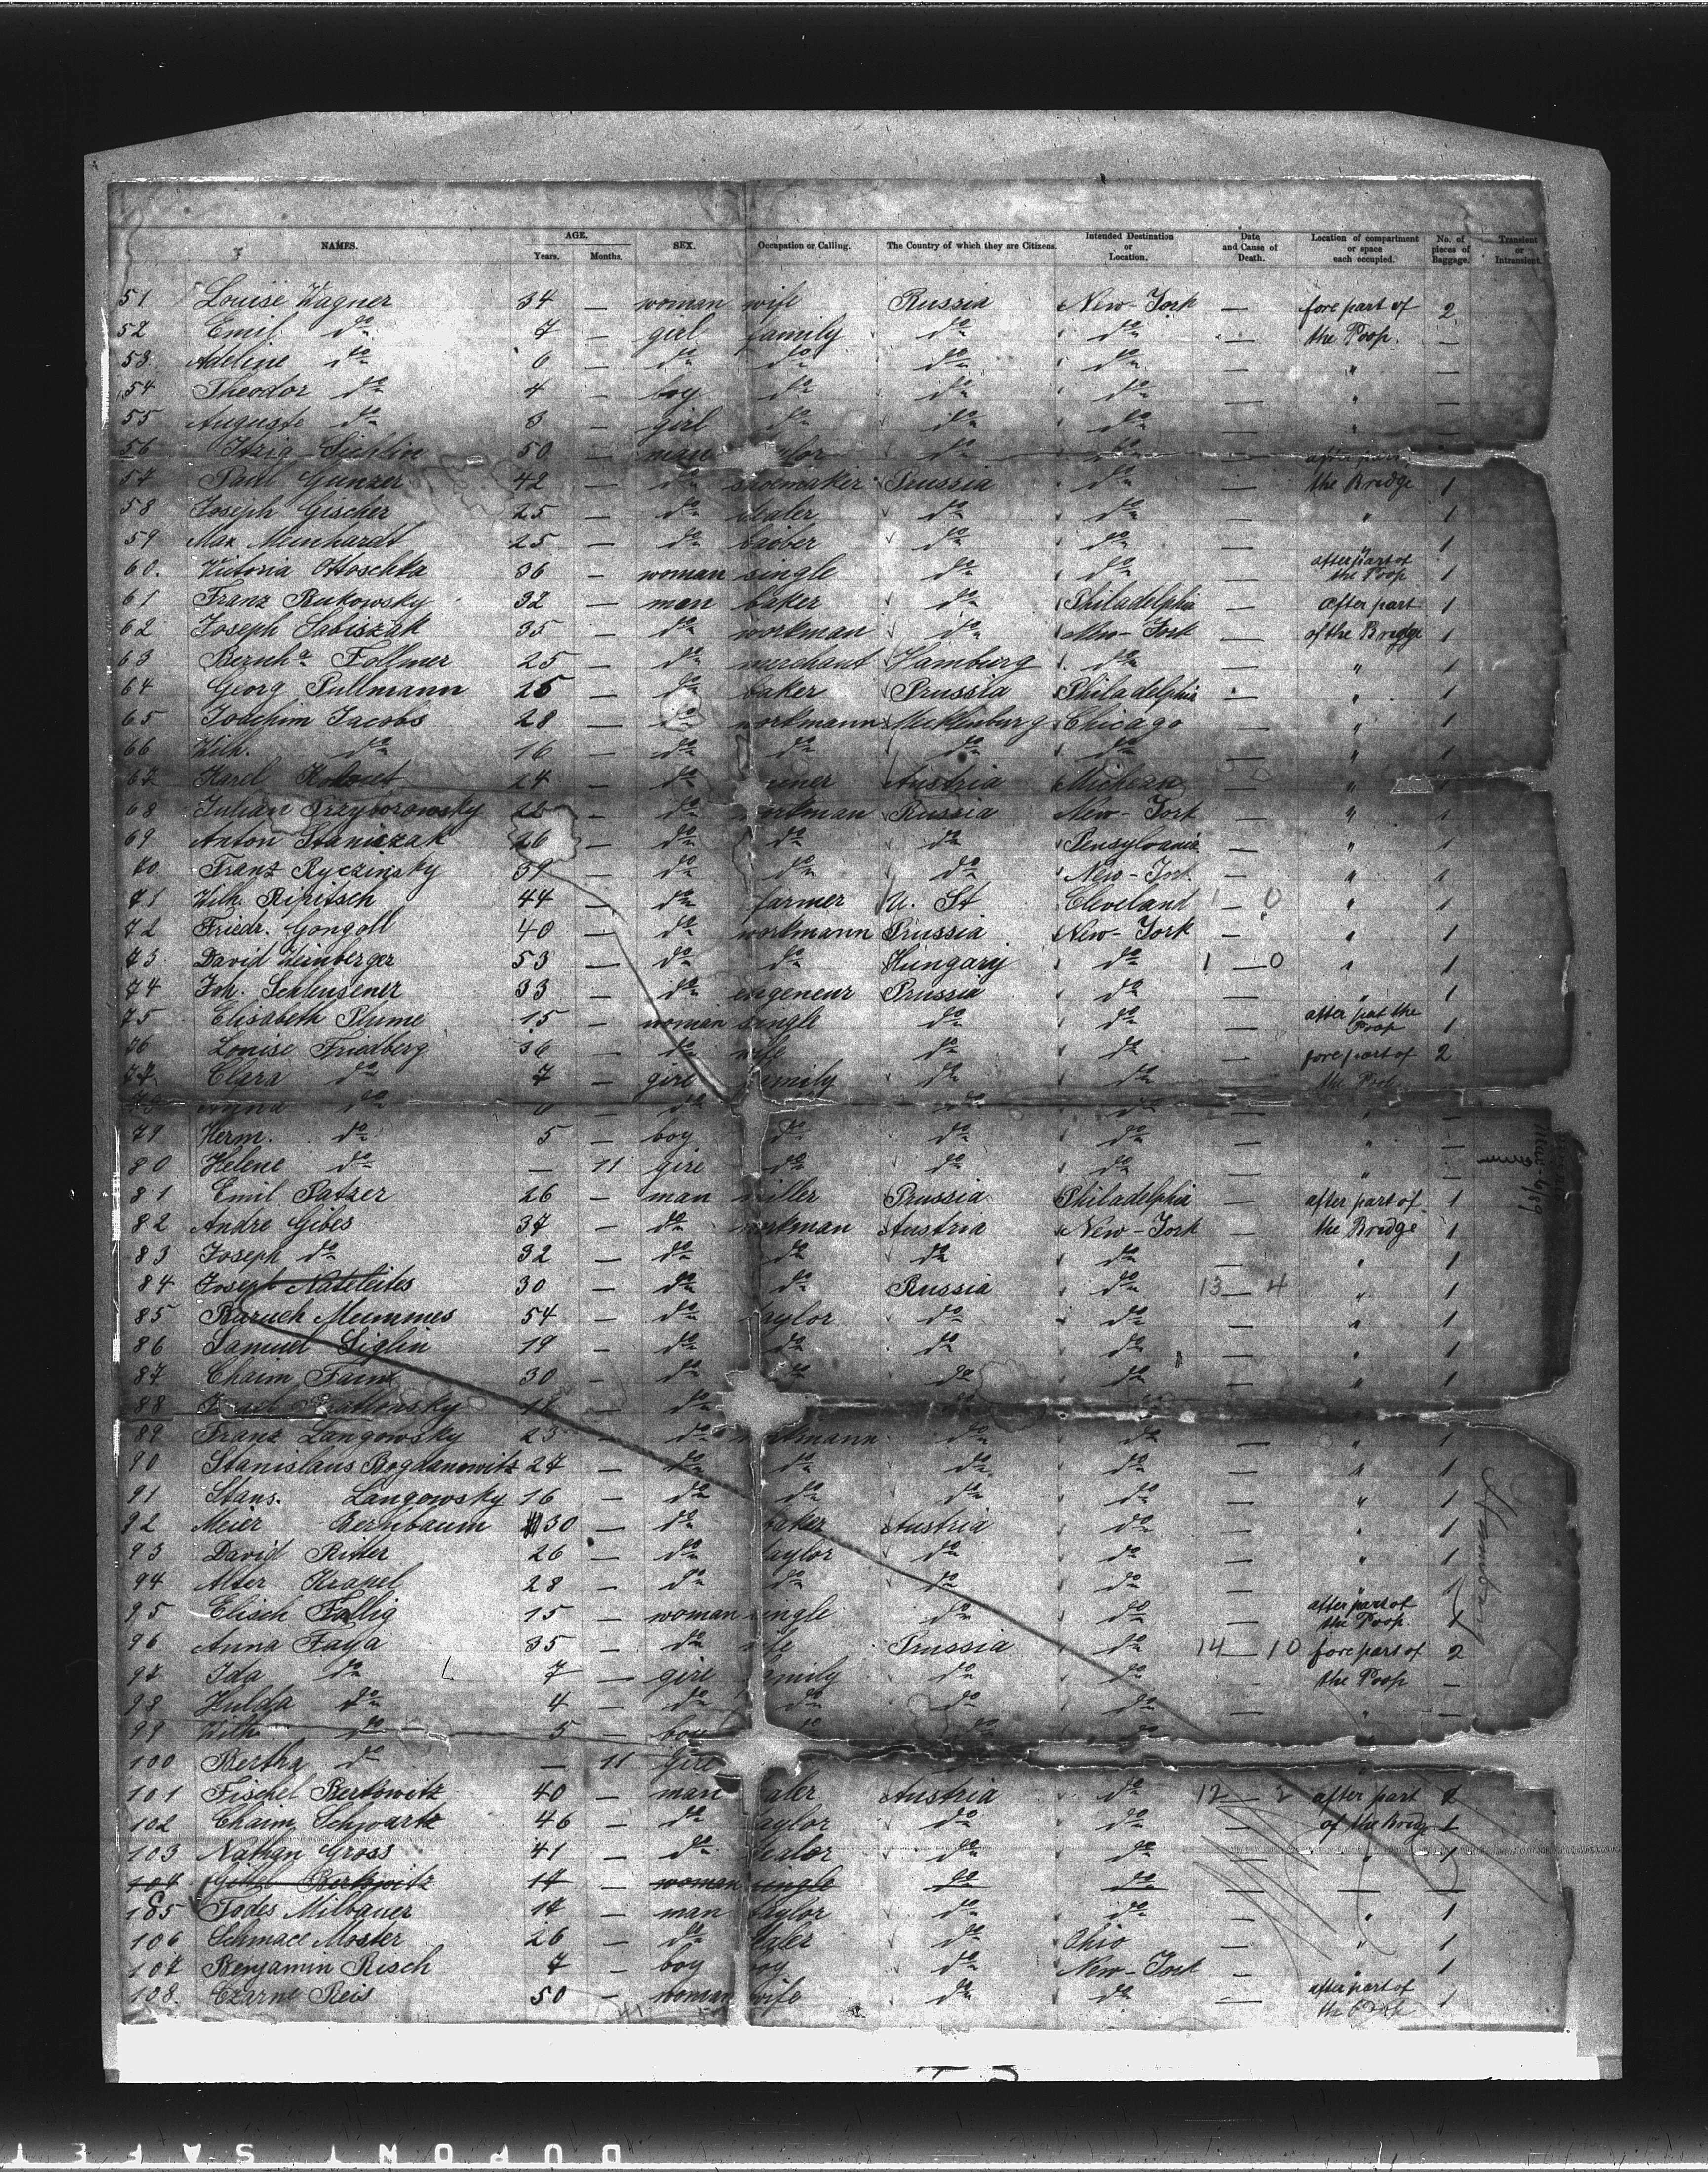 NAMES. AGE. Years. Months. SEX. Occupation or Calling. The Country of which they are Citizens. Intended Destination or Location. Date and Cause of Death. Location of compartment or space each occupied. No. of pieces of Baggage. Transient or Intransient.
51 Louise Wagner 34 — woman wife Russia New-York — fore part of 2
52 Emil do 7 — girl family do do — the Poop. —
53 Adeline do 6 — do do do do — " —
54 Theodor do 4 — boy do do do — " —
55 Auguste do 3 — girl do do do — " —
56 Itzig 50 — man do do
57 Paul Gunzer 42 — do shoemaker Prussia do — the Bridge 1
58 Joseph Gischer 25 — do dealer do do — " 1
59 Max Meinhardt 25 — do barber do do — " 1
60. Victoria Ottoschka 36 — woman single do do — after part of the Poop 1
61 Franz Rukowsky 32 — man baker do Philadelphia — after part 1
62 Joseph Sabiszak 35 — do workman do New-York — of the Bridge 1
63 Bernhd Follmer 25 — do merchant Hamburg do — " 1
64 Georg Pullmann 25 — do baker Prussia Philadelphia — " 1
65 Joachim Jacobs 28 — do workmann Mecklenburg Chicago — " 1
66 Wilh. do 16 — do do do do — " 1
67 Karel 24 — do Austria Michean " 1
68 Julian Przyborowsky 22 — do workman Russia New-York — " 1
69 Anton Staniczak 26 — do do do Pensylvania — " 1
70 Franz Ryczinsky 39 — do do do New-York — " 1
71 Wilh. Ripitsch 44 — do farmer U. St Cleveland 1 — 0 " 1
72 Friedr. Gongoll 40 — do workmann Prussia New-York — " 1
73 David Weinberger 53 — do do Hungary do 1 — 0 " 1
74 Joh. Schleusener 33 — do engeneur Prussia do — " 1
75 Elisabeth Plume 15 — woman single do do — after part the Poop 1
76 Louise Friedberg 36 — do wife do do — fore part of 2
77 Clara do 7 — girl family do do the Poop
78 Anna do 6 — do do do — " —
79 Herm. do 5 — boy do do do — " —
80 Helene do — 11 girl do do do — " —
81 Emil Patzer 26 — man miller Prussia Philadelphia — after part of 1
82 Andre Gibes 37 — do workman Austria New-York — the Bridge 1
83 Joseph do 32 — do do do do — " 1
84 Joseph Nateleites 30 — do do Russia do 13 — 4 " 1
85 Baruch Mummes 54 — do taylor do do — " 1
86 Samuel Siglin 19 — do do do do — " 1
87 Chaim Fainx 30 — do do do do — " 1
88 18 — do
89 Franz Langowsky 23 — do do do — " 1
90 Stanislaus Bogdanowitz 27 — do do do do — " 1
91 Stans. Langowsky 16 — do do do do — " 1
92 Meier Bernbaum 30 — do baker Austria do — " 1
93 David Ritter 26 — do taylor do do — " 1
94 Alter Krapel 28 — do do do do — " 1
95 Elisch Fallig 15 — woman single do do — after part of the Poop 1
96 Anna Faya 35 — do wife Prussia do 14 — 10 fore part of 2
97 Ida do 7 — girl family do do the Poop —
98 Hulda do 4 — do do do do — " —
99 Wilh. do 5 — boy do do do
100 Bertha do — 11 girl
101 Fischel Berkowitz 40 — man Austria do 12 — 2 after part
102 Chaim Schwartz 46 — do taylor do do — of the Bridge 1
103 Nathan Gross 41 — do dealer do do — " 1
104 Berkowitz 17 — woman single do do — — —
105 Todes Milbauer 17 — man taylor do do — " 1
106 Schmael Moster 26 — do do Ohio — " 1
107 Benjamin Risch 7 — boy boy do New-York — " 1
108. Czarne Reis 50 — woman wife do do — after part of the Poop 1
DUPONT SAFET